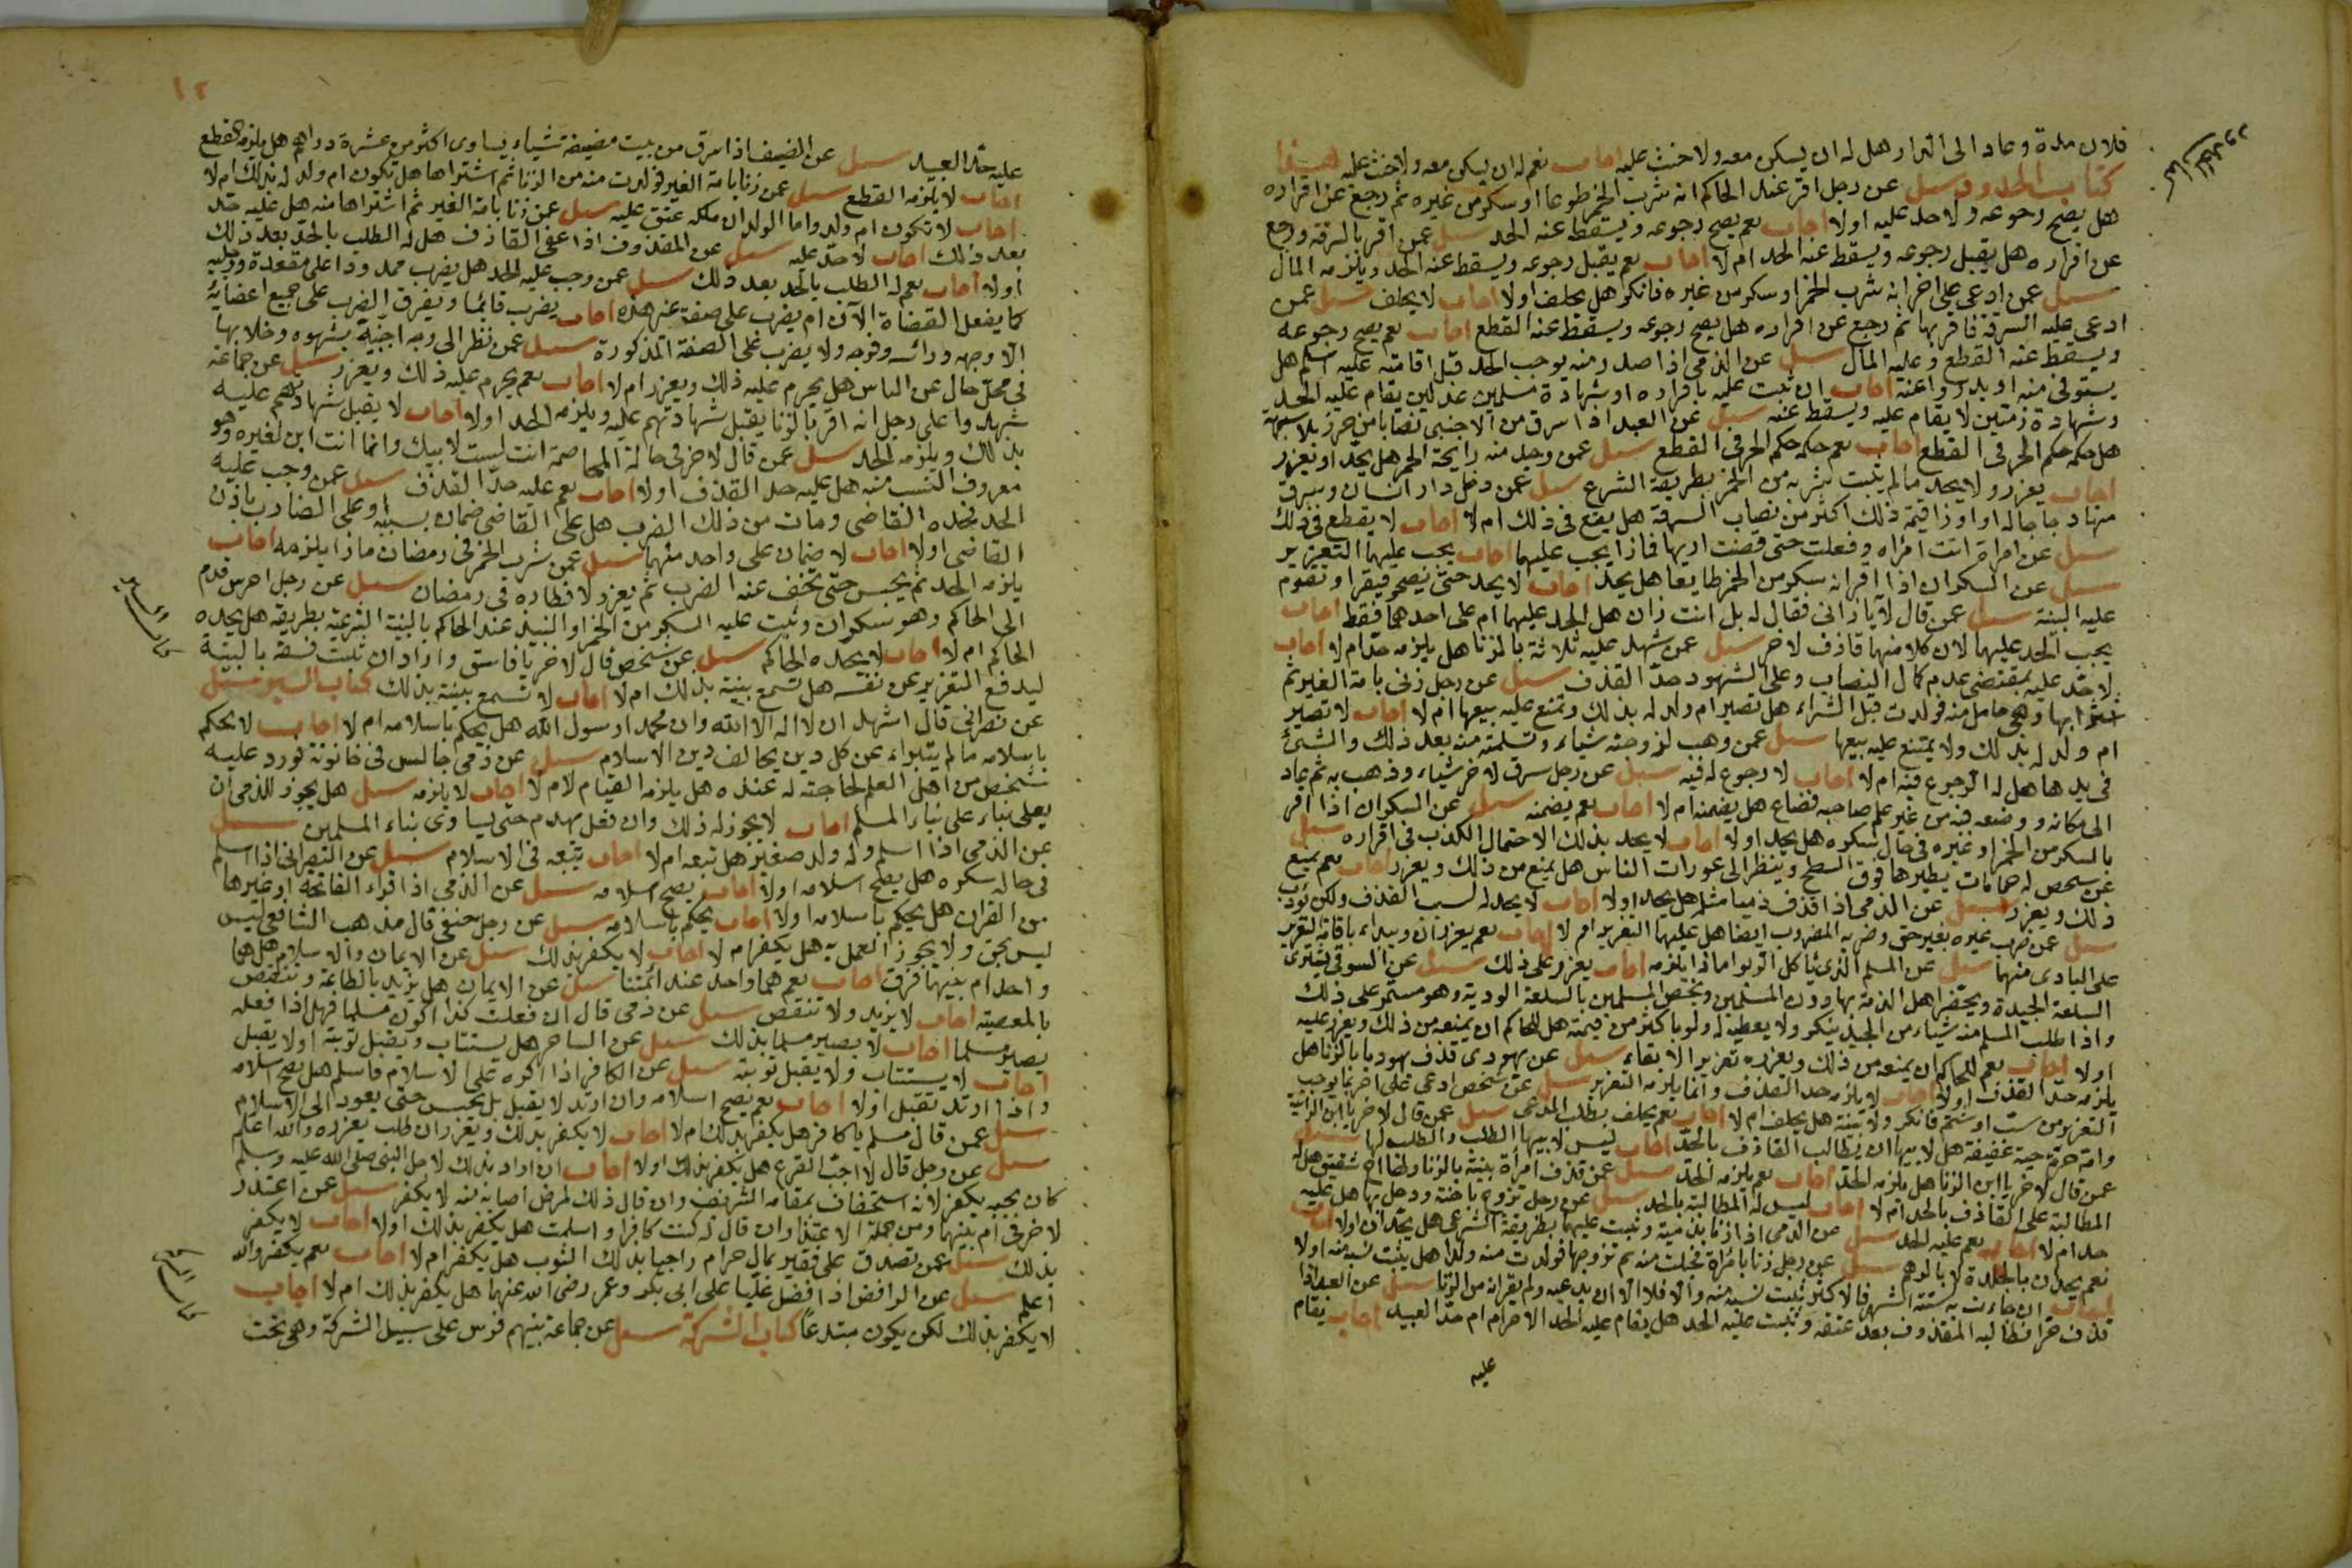 فلان مدة وعاد الى الدار هل له ان يسكن معه ولا حنث عليه اجاب نعم له ان يسكن معه ولا حنث عليه
كتاب الحدود سئل عن رجل اقر عند الحاكم انه شرب الخمر طوعا او سكر من غيره ثم رجع عن اقراره
هل يصح رجوعه ولا حد عليه اولا اجاب نعم يصح رجوعه ويسقط عنه الحد سئل عمن اقر بالسرقة ورجع
عن اقراره هل يقبل رجوعه ويسقط عنه الحد ام لا اجاب نعم يقبل رجوعه ويسقط عنه الحد ويلزمه المال
سئل عمن ادعى على اخر انه شرب الخمر او سكر من غيره فانكر هل يحلف اولا اجاب لا يحلف سئل عمن
ادعى عليه السرقة فاقر بها ثم رجع عن اقراره هل يصح رجوعه ويسقط عنه القطع اجاب نعم يصح رجوعه
ويسقط عنه القطع وعليه المال سئل عن الذمي اذا صدر منه يوجب الحد قبل اقامته عليه اسلم هل
يستوفى منه او يدرؤا عنه اجاب ان ثبت عليه باقراره او بشهادة مسلمين عدلين يقام عليه الحد
وشهادة ذمتين لا يقام عليه ويسقط عنه سئل عن العبد اذا سرق من الاجنبي نصابا من حرز بلا شبهة
هل حكمه حكم الحر في القطع اجاب نعم حكمه حكم الحر في القطع سئل عمن وجد منه رايحة الخمر هل يحد او يعزر
اجاب يعزر ولا يحد ما لم يثبت شربه من الخمر بطريقة الشرع سئل عمن دخل دار انسان وسرق
منها دجاجاله او اوزا قيمة ذلك اكثر من نصاب السرقة هل يقطع في ذلك ام لا اجاب لا يقطع في ذلك
سئل عن امراة اتت امراه وفعلت حتى قضت اربها فاذا يجب عليهما اجاب يجب عليهما التعزير
سئل عن السكران اذا اقر انه سكر من الخمر طايعا هل يحد اجاب لا يحد حتى يصحو فيقر او تقوم
عليه البينة سئل عمن قال لآخر يا زاني فقال له بل انت زان هل الحد عليهما ام على احدهما فقط اجاب
يجب الحد عليهما لان كلا منهما قاذف لآخر سئل عمن شهد عليه ثلاثة بالزنا هل يلزمه حد ام لا اجاب
لا حد عليه بمقتضى عدم كمال النصاب وعلى الشهود حد القذف سئل عن رجل زنى بامة الغير ثم
اشترابها وهي حامل منه فولدت قبل الشراء هل تصير ام ولد له بذلك ويمتنع عليه بيعها ام لا اجاب لا تصير
ام ولد له بذلك ولا يمتنع عليه بيعها سئل عمن وهب لزوجته شياء وتسلمته منه بعد ذلك والشئ
في يدها هل له الرجوع فيه ام لا اجاب لا رجوع له فيه سئل عن رجل سرق لاخر شياء وذهب به ثم عاد
الى مكانه ووضعه فيه من غير علم صاحبه فضاع هل يضمنه ام لا اجاب نعم يضمنه سئل عن السكران اذا اقر
بالسكر من الخمر او غيره في حال سكره هل يحد اولا اجاب لا يحد بذلك الاحتمال الكذب في اقراره سئل
عن شخص له حمامات يطيرها فوق السطح وينظر الى عورات الناس هل يمنع من ذلك ويعزر اجاب نعم يمنع
ذلك ويعزر سئل عن الذمي اذا قذف ذميا مثله هل يحد اولا اجاب لا يحد له لسب القذف ولكن يؤدب
سئل عمن ضرب غيره بغير حق وضربه المضروب ايضا هل عليهما التعزير ام لا اجاب نعم يعزران ويبداء باقامة التعزير
على البادى منهما سئل عن المسلم الذي ياكل الربوا ماذا يلزمه اجاب يعزر على ذلك سئل عن السوقي يشترى
السلعة الجيدة ويحتقر اهل الذمة بها دون المسلمين ويختص المسلمين بالسلعة الرديئة وهو مستمر على ذلك
واذا طلب المسلم منه شياء من الجيد ينكر ولا يعطيه له ولو باكثر من قيمته هل للحاكم ان يمنعه من ذلك ويعزر عليه
اولا اجاب نعم للحاكم ان يمنعه من ذلك ويعزره تعزيرا لا بقاء سئل عن يهودى قذف يهوديا بالزنا هل
يلزمه حد القذف اولا اجاب لا يلزمه حد القذف وانما يلزمه التعزير سئل عن شخص ادعى على اخر بما يوجب
التعزير من سب او شتم فانكر ولا بينة هل يحلف ام لا اجاب نعم يحلف بطلب المدعى سئل عمن قال لاخر يا ابن الزانية
وامه حرة حية عفيفة هل لابيها ان يطالب القاذف بالحد اجاب ليس لابيها الطلب والطلب لها سئل
عمن قال لاخر يا ابن الزنا هل يلزمه الحد اجاب نعم يلزمه الحد سئل عمن قذف امراة ميتة بالزنا ولها اخ شقيق هل له
المطالبة على القاذف بالحد ام لا اجاب ليس له المطالبة بالحد سئل عن رجل تزوج باخته ودخل بها هل عليه
حد ام لا اجاب نعم عليه الحد سئل عن الذمي اذا زنا بذمية وثبت عليهما بطريقة الشرعي هل يحدان اولا اجاب
نعم يحدان بالجلدة لا بالرجم سئل عن رجل زنا بامراة فحبلت منه ثم تزوجها فولدت منه ولدا هل يثبت نسبه منه اولا
اجاب ان جاءت به لستة اشهر فالاكثر يثبت نسبه منه والا فلا الا ان يدعيه ولم يقر انه من الزنا سئل عن العبد اذا
قذف حرا فطالبه المقذوف بعد عتقه وثبت عليه الحد هل يقام عليه الحد الاحرام ام حد العبيد اجاب يقام
عليه
١٢
عليه حد العبيد سئل عن الضيف اذا سرق من بيت مضيفه شياء يساوى اكثر من عشرة دراهم هل يلزمه القطع
اجاب لا يلزمه القطع سئل عمن زنا بامة الغير فولدت منه من الزنا ثم اشتراها هل تكون ام ولد له بذلك ام لا
اجاب لا تكون ام ولد واما الولد ان ملكه عتق عليه سئل عمن زنا بامة الغير ثم اشتراها منه هل عليه حد
بعد ذلك اجاب لا حد عليه سئل عن المقذوف اذا عفى القاذف هل له الطلب بالحد بعد ذلك
اولا اجاب نعم له الطلب بالحد بعد ذلك سئل عمن وجب عليه الحد هل يضرب ممدودا على مقعدة ورجليه
كما يفعل القضاة الآن ام يضرب على صفة غير هذه اجاب يضرب قايما ويفرق الضرب على جميع اعضايه
الا وجهه وراسه وفرجه ولا يضرب على الصفة المذكورة سئل عمن نظر الى وجه اجنبية بشهوه وخلا بها
في محل خال عن الناس هل يحرم عليه ذلك ويعزر ام لا اجاب نعم يحرم عليه ذلك ويعزر سئل عن جماعة
شهدوا على رجل انه اقر بالزنا يقبل شهادتهم عليه ويلزمه الحد اولا اجاب لا يقبل شهادتهم عليه
بذلك ويلزمه الحد سئل عمن قال لاخر في حالة المخاصمة انت لست لابيك وانما انت ابن لغيره وهو
معروف النسب منه هل عليه حد القذف اولا اجاب نعم عليه حد القذف سئل عمن وجب عليه
الحد فحده القاضي ومات من ذلك الضرب هل على القاضي ضمان بسببه او على الضارب باذن
القاضى اولا اجاب لا ضمان على واحد منهما سئل عمن شرب الخمر في رمضان ماذا يلزمه اجاب
يلزمه الحد ثم يحبس حتى يخفف عنه الضرب ثم يعزر لافطاره في رمضان سئل عن رجل اخرس قدم
الى الحاكم وهو سكران وثبت عليه السكر من الخمر او النبيذ عند الحاكم بالبينة الشرعية بطريقه هل يحده
الحاكم ام لا اجاب لا يحده الحاكم سئل عن شخص قال لاخر يا فاسق واراد ان يثبت فسقه بالبينة
ليدفع التعزير عن نفسه هل تسمع بينة بذلك ام لا اجاب لا تسمع بينة بذلك كتاب السير سئل
عن نصرانى قال اشهد ان لا اله الا الله وان محمدا رسول الله هل يحكم باسلامه ام لا اجاب لا يحكم
باسلامه ما لم يتبراء عن كل دين يخالف دين الاسلام سئل عن ذمي جالس في حانوته فورد عليه
شخص من اهل العلم لحاجته له عنده هل يلزمه القيام لام لا اجاب لا يلزمه سئل هل يجوز للذمي ان
يعلى بناء على بناء المسلم اجاب لا يجوز له ذلك وان فعل يهدم حتى يساوى بناء المسلمين سئل
عن الذمي اذا اسلم وله ولد صغير هل تبعه ام لا اجاب يتبعه في الاسلام سئل عن النصرانى اذا اسلم
في حالة سكره هل يصح اسلامه اولا اجاب يصح اسلامه سئل عن الذمي اذا قراء الفاتحة او غيرها
من القران هل يحكم باسلامه اولا اجاب يحكم باسلامه سئل عن رجل حنفي قال مذهب الشافعى ليس
ليس بحق ولا يجوز العمل به هل يكفر ام لا اجاب لا يكفر بذلك سئل عن الايمان والاسلام هل هما
واحد ام بينهما فرق اجاب نعم هما واحد عند ائمتنا سئل عن الايمان هل يزيد بالطاعة وينقص
بالمعصية اجاب لا يزيد ولا ينقص سئل عن ذمي قال ان فعلت كذا اكون مسلما فهل اذا فعله
يصير مسلما اجاب لا يصير مسلما بذلك سئل عن الساحر هل يستتاب ويقبل توبته اولا يقبل
اجاب لا يستتاب ولا يقبل توبته سئل عن الكافر اذا اكره على الاسلام فاسلم هل يصح اسلامه
واذا ارتد تقبل اولا اجاب نعم يصح اسلامه وان ارتد لا يقبل بل يحبس حتى يعود الى الاسلام
سئل عمن قال مسلم يا كافر هل يكفر بذلك ام لا اجاب لا يكفر بذلك ويعزر ان طلب يعزره والله اعلم
سئل عن رجل قال لا احب القرع هل يكفر بذلك اولا اجاب ان اراد بذلك لاجل النبي صلى الله عليه وسلم
كان يحبه يكفر لانه استخفاف بمقامه الشريف وان قال ذلك لمرض اصابه منه لا يكفر سئل عن اعتذر
لاخر في ام بينهما ومن جملة الاعتذار ان قال له كنت كافرا واسلمت هل يكفر بذلك اولا اجاب لا يكفر
بذلك سئل عمن تصدق على فقير بمال حرام راجيا بذلك الثوب هل يكفر ام لا اجاب نعم يكفر والله
اعلم سئل عن الرافضي اذا فضل عليا على ابي بكر وعمر رضى الله عنهما هل يكفر بذلك ام لا اجاب
لا يكفر بذلك لكن يكون مبتدعا كتاب الشركة سئل عن جماعة بينهم فرس على سبيل الشركة وهي تحت
كتاب السير
كتاب الشركة